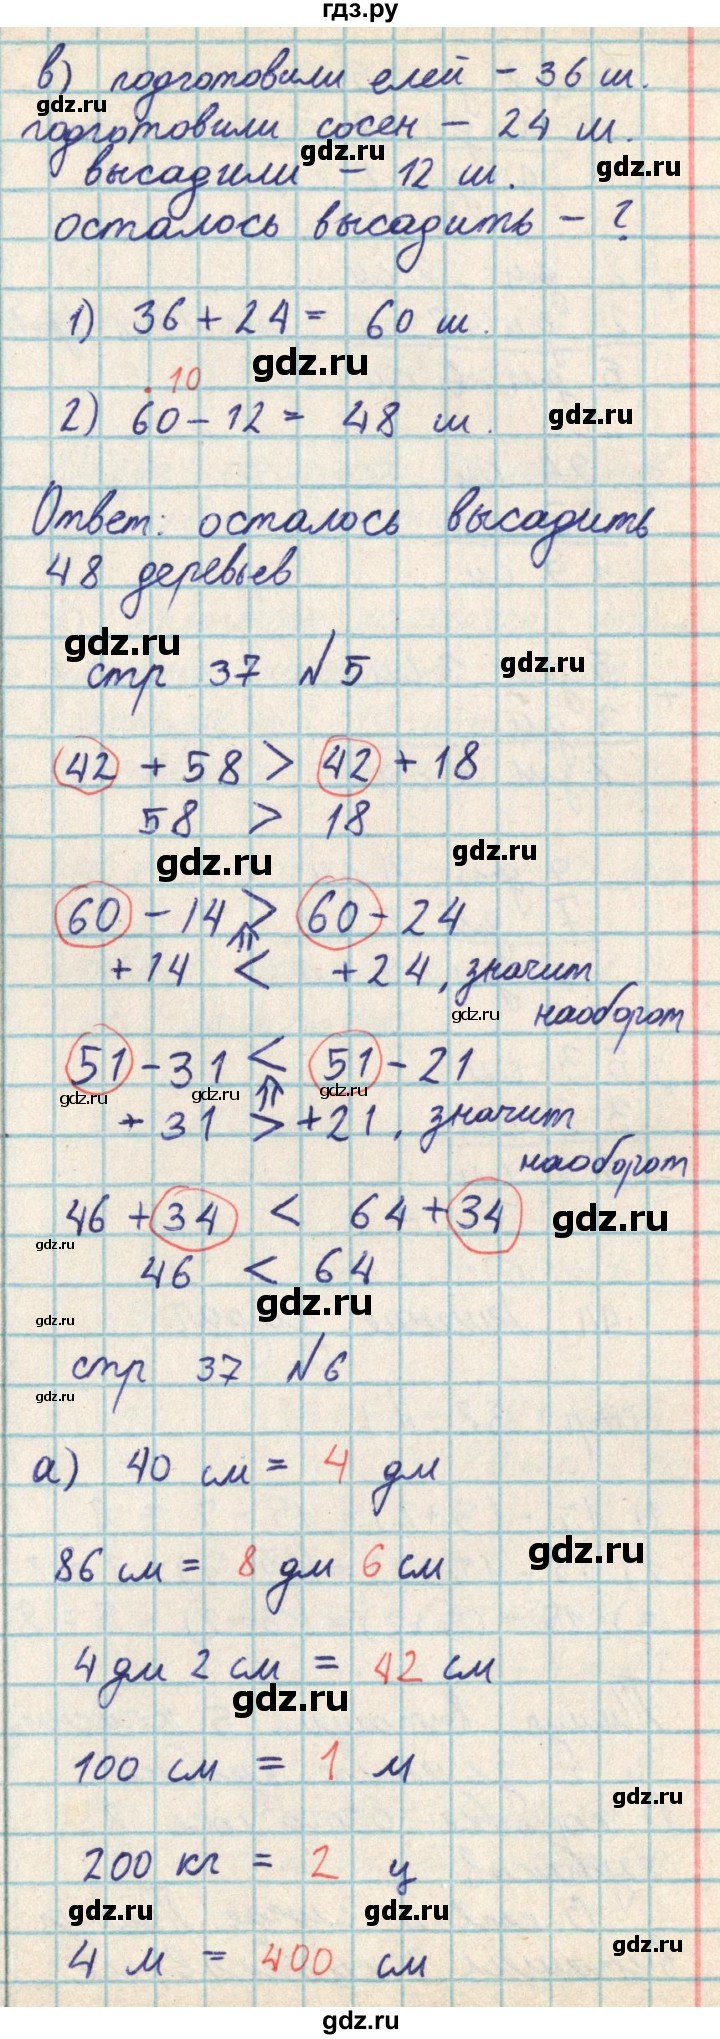 гдз.ру
в) подготовили елей - 36 ш.
gdz.ru
подготовили сосен - 24 м.
gdz.ru
gdz.ru
высадили - 12 ш.
осталось высадить - ?
1) 36 + 24 = 60 ш.
gdz.ru
. 10
2) 60 - 12 = 48 ш.
gdz.ru
Ответ: осталось высадить
48 деревьев
gdz.ru
стр 37 №5
gdz.ru
42 + 58 > 42 + 18
58 > 18
gdz.ru
gdz.ru
60 - 14 > 60 - 24
+14 < +24, значит
gdz.ru
наоборот
51 - 31 < 51 - 21
gdz.ru
gdz.ru
gdz.ru
+31 > +21, значит
наоборот
46 + 34 < 64 + 34
gdz.ru
gdz.ru
46 < 64
gdz.ru
gdz.ru
стр 37 №6
gdz.ru
а) 40 см = 4 дм
gdz.ru
86 см = 8 дм 6 см
4 дм 2 см = 42 см
gdz.ru
100 см = 1 м
gdz.ru
200 кг = 2 ц
gdz.ru
gdz.ru
gdz.ru
4 м = 400 см
gdz.ru